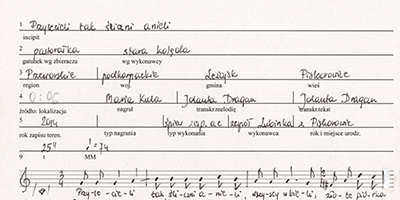 1 Przylecieli tak śliczni anieli
incipit
2 pastorałka stara kolęda
gatunek wg zbieracza wg wykonawcy
3 Przeworskie podkarpackie Leżajsk Piskorowice
region woj. gmina wieś
4 0:06 Maria Kula Jolanta Dragan Jolanta Dragan
źródło: lokalizacja nagrał transkr.melodię transkr.tekst
5 2014 śpiew zesp. ac zespół Łubinka z Piskorowic
rok zapisu teren. typ nagrania typ wykonania wykonawca rok i miejsce urodz.
25" = 74
9 t MM
Przy-le-cie-li tak śli-czni a-nie-li, wszy-scy w bie-li, zło-te piór-ka